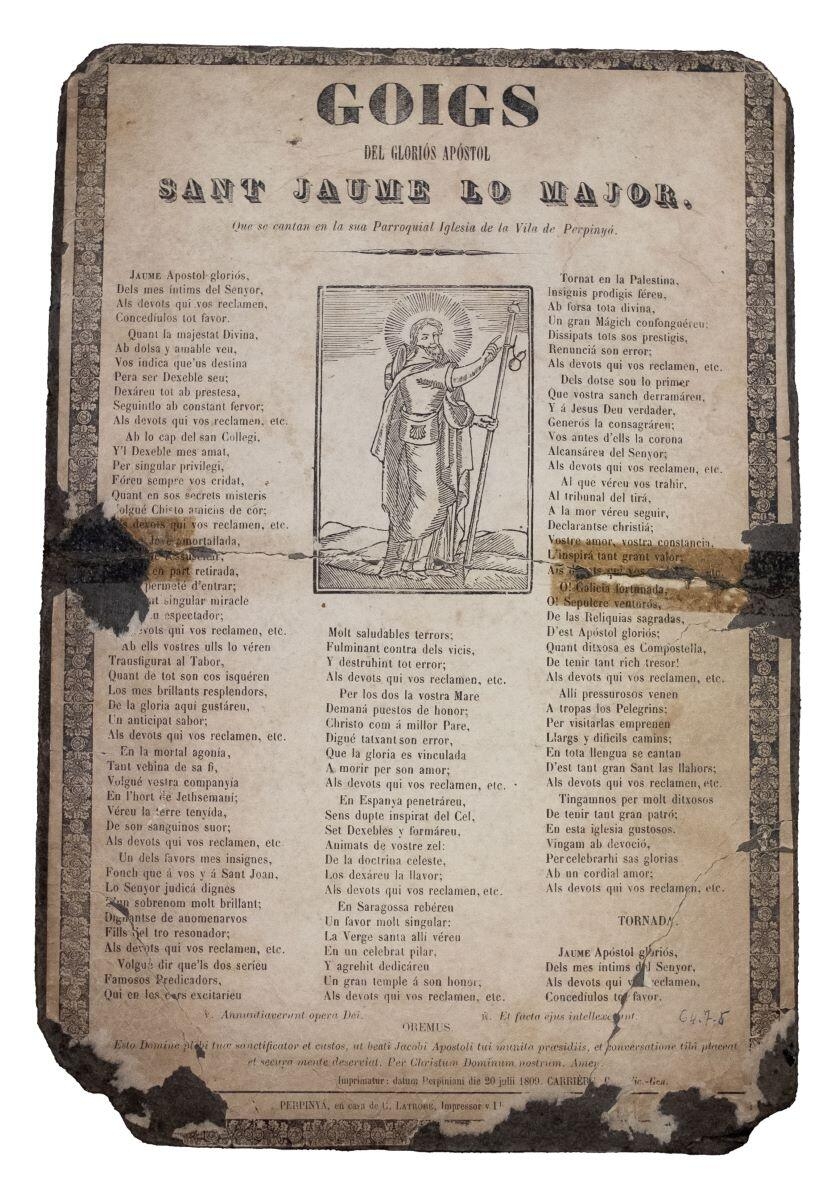 GOIGS
DEL GLORIÓS APÓSTOL
SANT JAUME LO MAJOR.
Que se cantan en la sua Parroquial Iglesia de la Vila de Perpinyá.
JAUME Apostol gloriós,
Dels mes íntims del Senyor,
Als devots qui vos reclamen,
Concedíulos tot favor.
Quant la majestat Divina,
Ab dolsa y amable veu,
Vos indica que'us destina
Pera ser Dexeble seu;
Dexáreu tot ab prestesa,
Seguintlo ab constant fervor;
Als devots qui vos reclamen, etc.
Ab lo cap del san Collegi,
Y'l Dexeble mes amat,
Per singular privilegi,
Fóreu sempre vos cridat,
Quant en sos secrets misteris
Volgué Christo amichs de cor;
Als devots qui vos reclamen, etc.
amortallada,
en part retirada,
permeté d'entrar;
singular miracle
espectador;
devots qui vos reclamen, etc.
Ab ells vostres ulls lo véren
Transfigurat al Tabor,
Quant de tot son cos isquéren
Los mes brillants resplendors,
De la gloria aquí gustáreu,
Un anticipat sabor;
Als devots qui vos reclamen, etc.
En la mortal agonía,
Tant vehina de sa fi,
Volgué vostra companyia
En l'hort de Jethsemani;
Véreu la terre tenyida,
De son sanguinos suor;
Als devots qui vos reclamen, etc
Un dels favors mes insignes,
Fonch que á vos y á Sant Joan,
Lo Senyor judicá dignes
D'un sobrenom molt brillant;
Dignantse de anomenarvos
Fills del tro resonador;
Als devots qui vos reclamen, etc.
Volgué dir que'ls dos seríeu
Famosos Predicadors,
Qui en los cors excitaríeu
Molt saludables terrors;
Fulminant contra dels vicis,
Y destruhint tot error;
Als devots qui vos reclamen, etc.
Per los dos la vostra Mare
Demaná puestos de honor;
Christo com á millor Pare,
Digué tatxant son error,
Que la gloria es vinculada
A morir per son amor;
Als devots qui vos reclamen, etc.
En Espanya penetráreu,
Sens dupte inspirat del Cel,
Set Dexebles y formáreu,
Animats de vostre zel:
De la doctrina celeste,
Los dexáreu la llavor;
Als devots qui vos reclamen, etc.
En Saragossa rebéreu
Un favor molt singular:
La Verge santa allí véreu
En un celebrat pilar,
Y agrehit dedicáreu
Un gran temple á son honor;
Als devots qui vos reclamen, etc.
Tornat en la Palestina,
Insignis prodigis féreu,
Ab forsa tota divina,
Un gran Mágich confonguéreu;
Dissipats tots sos prestigis,
Renunciá son error;
Als devots qui vos reclamen, etc.
Dels dotse sou lo primer
Que vostra sanch derramáreu,
Y á Jesus Deu verdader,
Generós la consagráreu;
Vos antes d'ells la corona
Alcansáreu del Senyor;
Als devots qui vos reclamen, etc.
Al que véreu vos trahir,
Al tribunal del tirá,
A la mor véreu seguir,
Declarantse christiá;
Vostre amor, vostra constancia,
L'inspirá tant grant valor;
Als devots qui vos reclamen, etc.
O! Galicia fortunada,
O! Sepulcre venturós,
De las Reliquias sagradas,
D'est Apóstol gloriós;
Quant ditxosa es Compostella,
De tenir tant rich tresor!
Als devots qui vos reclamen, etc.
Allí pressurosos venen
A tropas los Pelegrins;
Per visitarlas emprenen
Llargs y dificils camins;
En tota llengua se cantan
D'est tant gran Sant las llahors;
Als devots qui vos reclamen, etc.
Tingamnos per molt ditxosos
De tenir tant gran patró;
En esta iglesia gustosos.
Vingam ab devoció,
Per celebrarhi sas glorias
Ab un cordial amor;
Als devots qui vos reclamen, etc.
TORNADA.
JAUME Apóstol gloriós,
Dels mes íntims del Senyor,
Als devots qui vos reclamen,
Concedíulos tot favor.
℣. Annuntiaverunt opera Dei. ℟. Et facta ejus intellexerunt.
64.7.5
OREMUS
Esto Domine plebi tuæ sanctificator et custos, ut beati Jacobi Apostoli tui munita præsidiis, et conversatione tibi placeat
et secura mente deserviat. Per Christum Dominum nostrum. Amen.
Imprimatur: datum Perpiniani die 20 julii 1809. CARRIÈRE, Vic.-Gen.
PERPINYÁ, en casa de LATROBE, Impressor